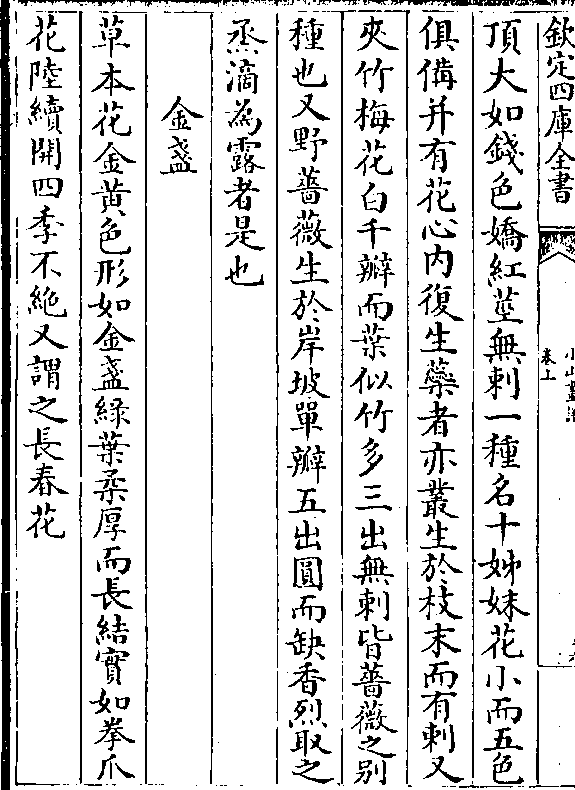 欽定四庫全書
卷上
頂大如錢色嬌紅莖無刺一種名十姊妹花小而五色
俱備并有花心內復生蘂者亦叢生於枝末而有刺又
夾竹梅花白千瓣而葉似竹多三出無刺皆薔薇之别
種也又野薔薇生於岸坡單瓣五出圓而缺香烈取之
烝滴為露者是也
金盞
草本花金黄色形如金盞緑葉柔厚而長結實如拳爪
花陸續開四季不絶又謂之長春花